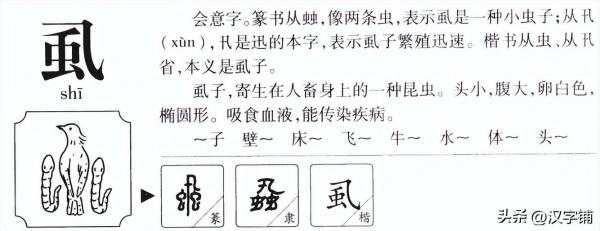 虱
shī
会意字。篆书从䖵,像两条虫,表示虱是一种小虫子;从卂
(xùn),卂是迅的本字,表示虱子繁殖迅速。楷书从虫、从卂
省,本义是虱子。
虱子,寄生在人畜身上的一种昆虫。头小,腹大,卵白色,
椭圆形。吸食血液,能传染疾病。
~子 壁~ 床~ 飞~ 牛~ 水~ 体~ 头~
篆
蝨 隶
虱 楷
头条 @汉字铺